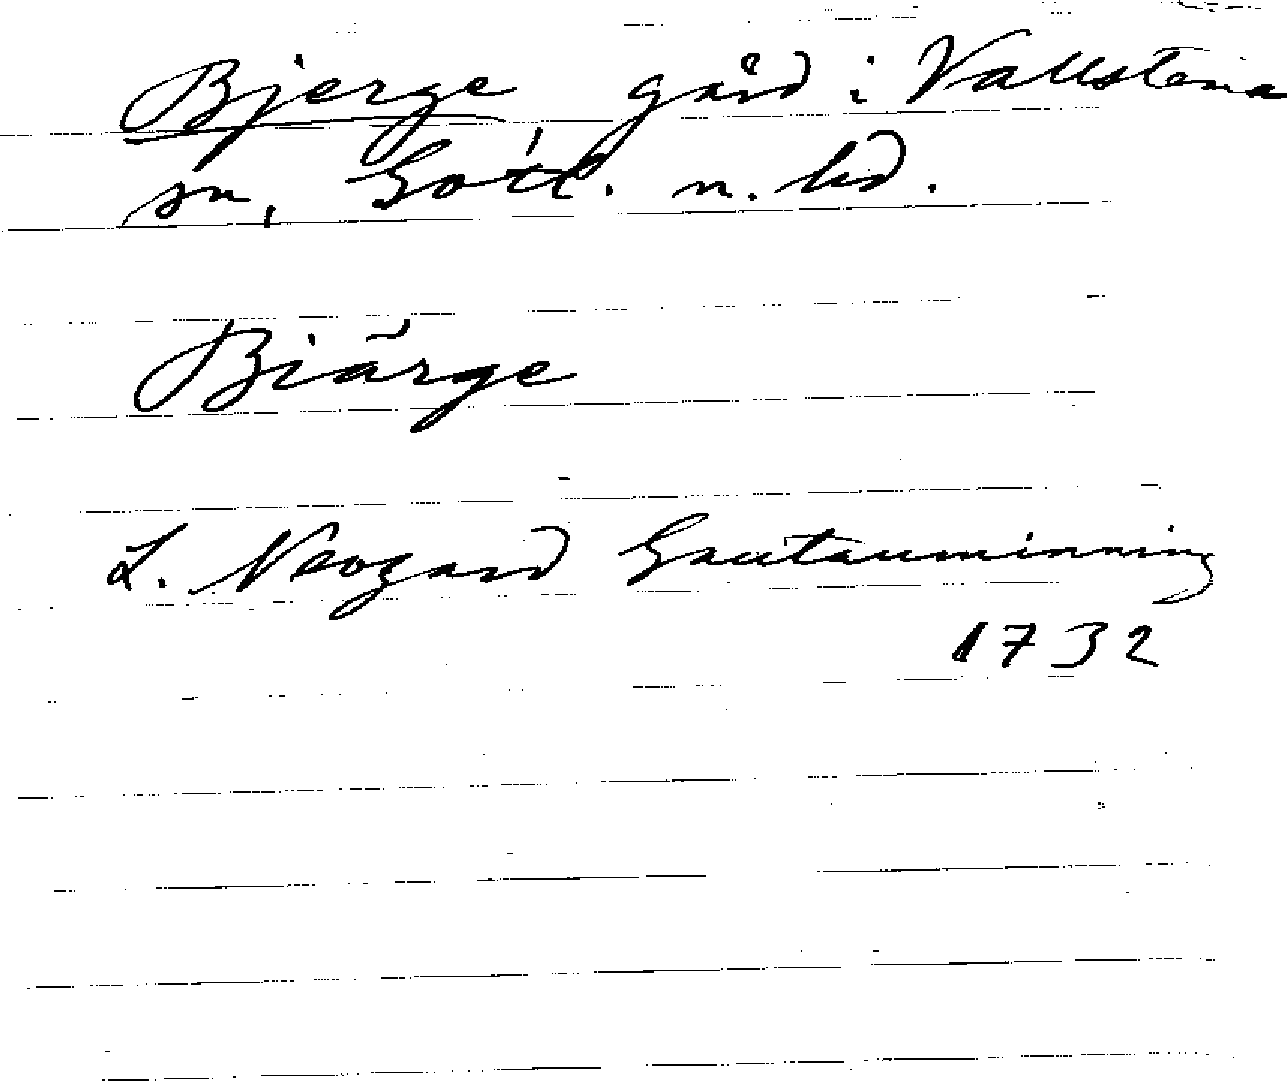 Bjerge gård i Vallstena
sn, Gotl. n. hd.
Biärge
L. Neogard Gautauminning
1732